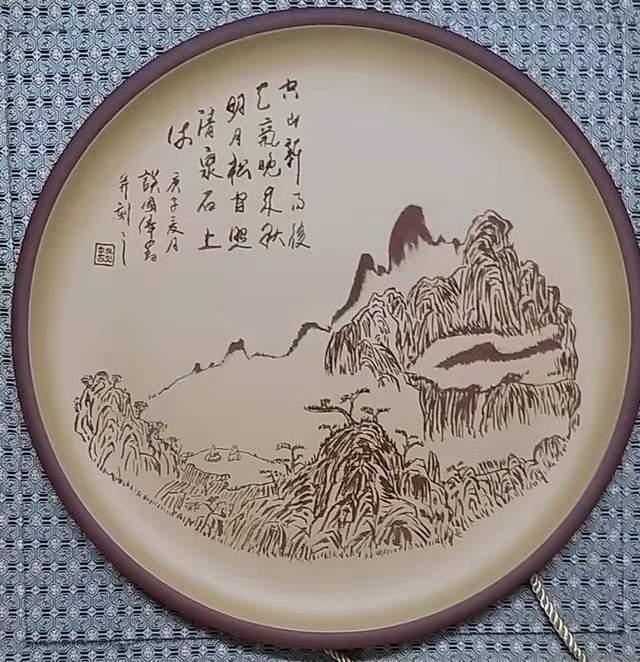 空山新雨後
天氣晚来秋
明月松间照
清泉石上
流
庚子夏月
国伟书
并刻之